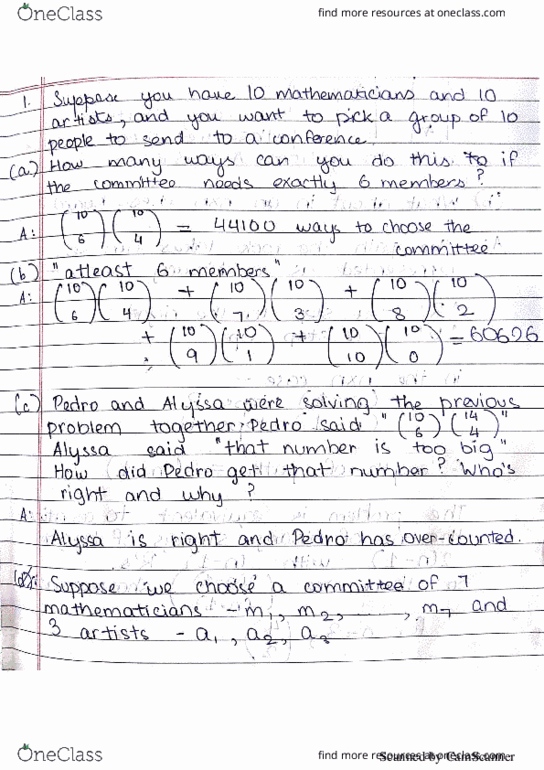 OneClass
find more resources at oneclass.com
1. Suppose you have 10 mathematicians and 10
artists, and you want to pick a group of 10
people to send to a conference.
(a) How many ways can you do this to if
the committee needs exactly 6 members?
A: (10 6) (10 4) = 44100 ways to choose the
committee
(b) "atleast 6 members"
A: (10 6) (10 4) + (10 7) (10 3) + (10 8) (10 2)
+ (10 9) (10 1) + (10 10) (10 0) = 60626
(c) Pedro and Alyssa were solving the previous
problem together. Pedro said "(10 6) (14 4)"
Alyssa said "that number is too big"
How did Pedro get that number? Who's
right and why ?
A:
Alyssa is right and Pedro has over-counted.
(d) Suppose we choose a committee of 7
mathematicians - m1, m2, ___, m7 and
3 artists - a1, a2, a3
OneClass
find more resources at oneclass.com
Scanned by CamScanner